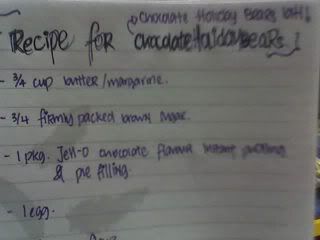 Chocolate Holiday Bears lah!
Recipe for chocolateHolidayBEARS!
- 3/4 cup butter/margarine.
- 3/4 firmly packed brown sugar.
- 1 pkg. Jell-O chocolate flavour instant pudding
& pie filling.
- 1 egg.